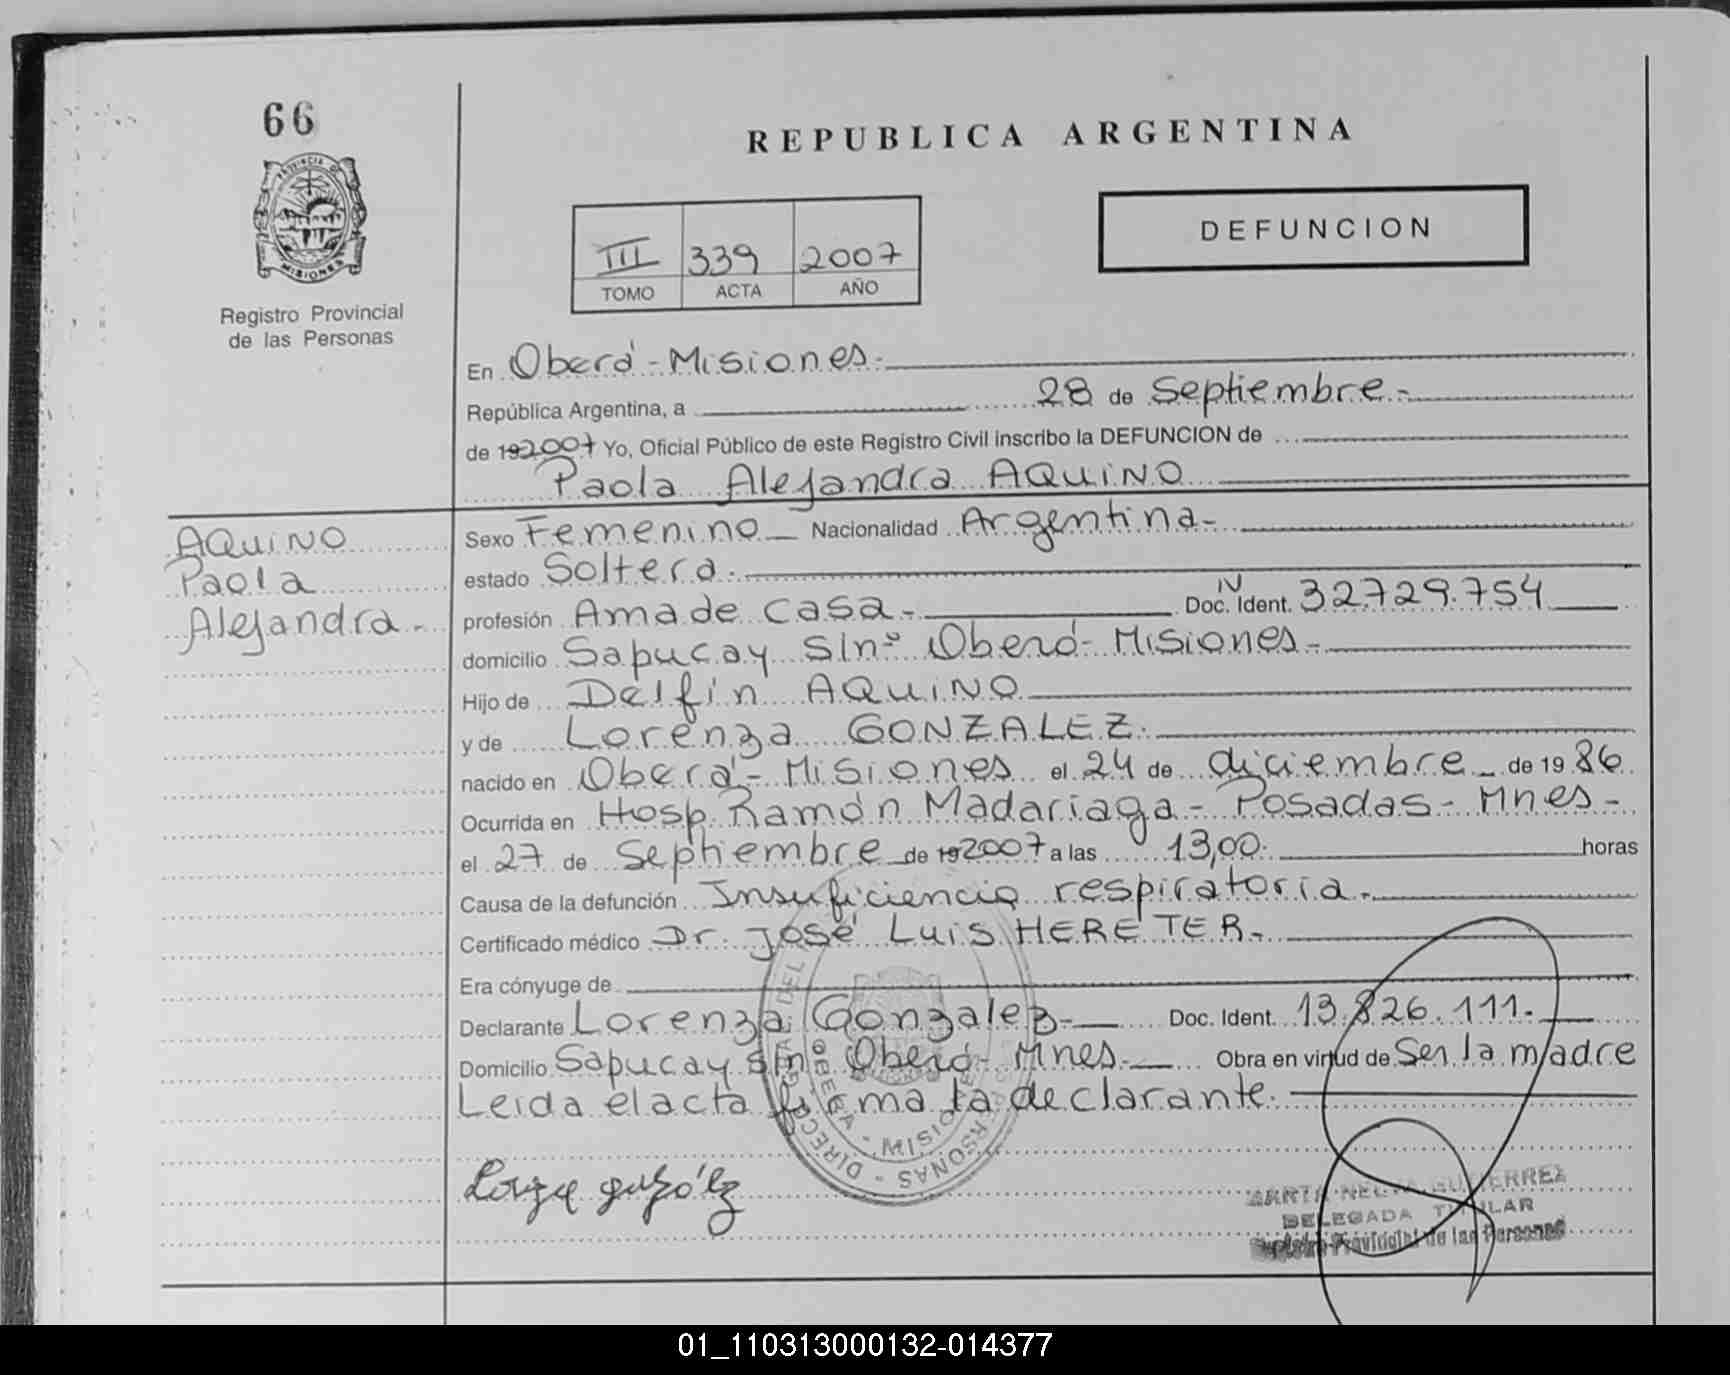 66
PROVINCIA DE
MISIONES
Registro Provincial
de las Personas
REPUBLICA ARGENTINA
III 339 2007
TOMO ACTA AÑO
DEFUNCION
En Oberá - Misiones.
República Argentina, a 28 de Septiembre.-
de 19 2007 Yo, Oficial Público de este Registro Civil inscribo la DEFUNCION de
Paola Alejandra AQUINO
AQUINO
Paola
Alejandra.-
Sexo Femenino Nacionalidad Argentina-
estado Soltera.
profesión Ama de casa.- Doc. Ident. N 32.729.754
domicilio Sapucay S/nº Oberá- Misiones.-
Hijo de Delfín AQUINO
y de Lorenza GONZALEZ.
nacido en Oberá - Misiones el 24 de diciembre de 19 86
Ocurrida en Hosp. Ramón Madariaga - Posadas - Mnes -
el 27 de Septiembre de 19 2007 a las 13,00. horas
Causa de la defunción Insuficiencia respiratoria.-
Certificado médico Dr. José Luis HERETER.-
Era cónyuge de
Declarante Lorenza Gonzalez- Doc. Ident. 13.826.111.-
Domicilio Sapucay s/n Oberá- Mnes.- Obra en virtud de Ser la madre
Leida el acta firma la declarante.
DELEGADA TITULAR
Registro Provincial de las Personas
01_110313000132-014377